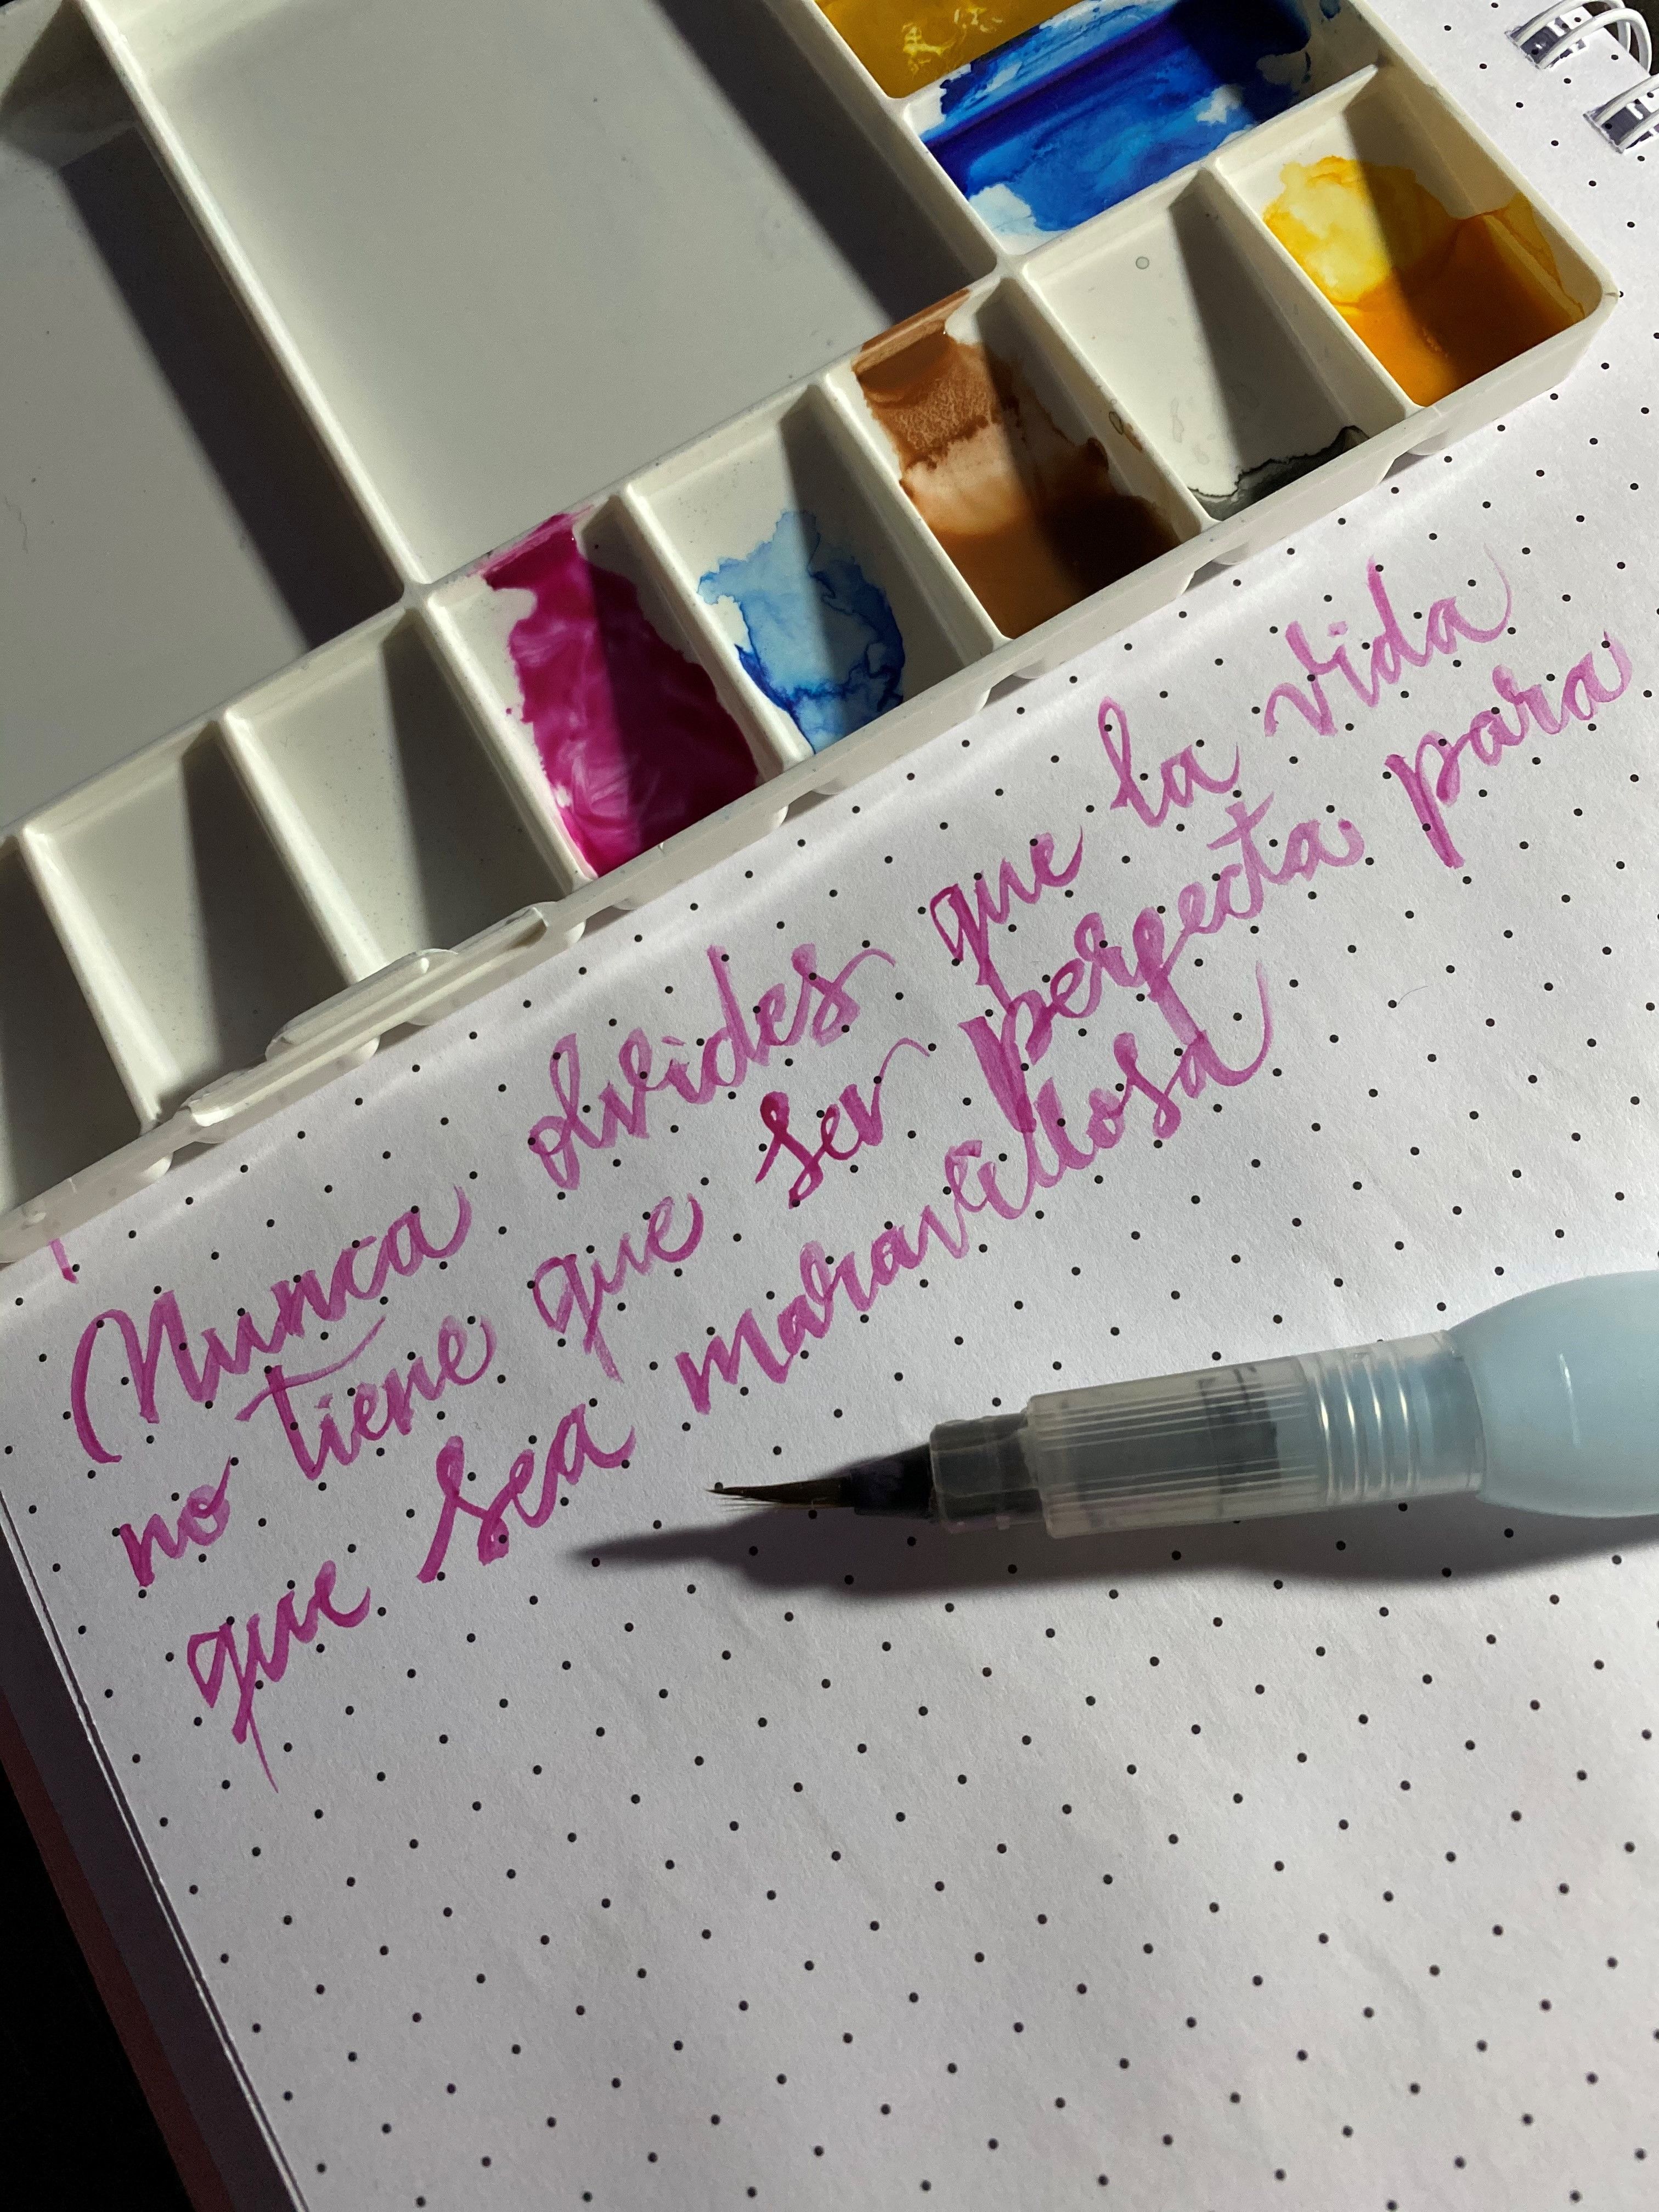 Nunca olvides que la vida
no tiene que ser perfecta para
que sea maravillosa